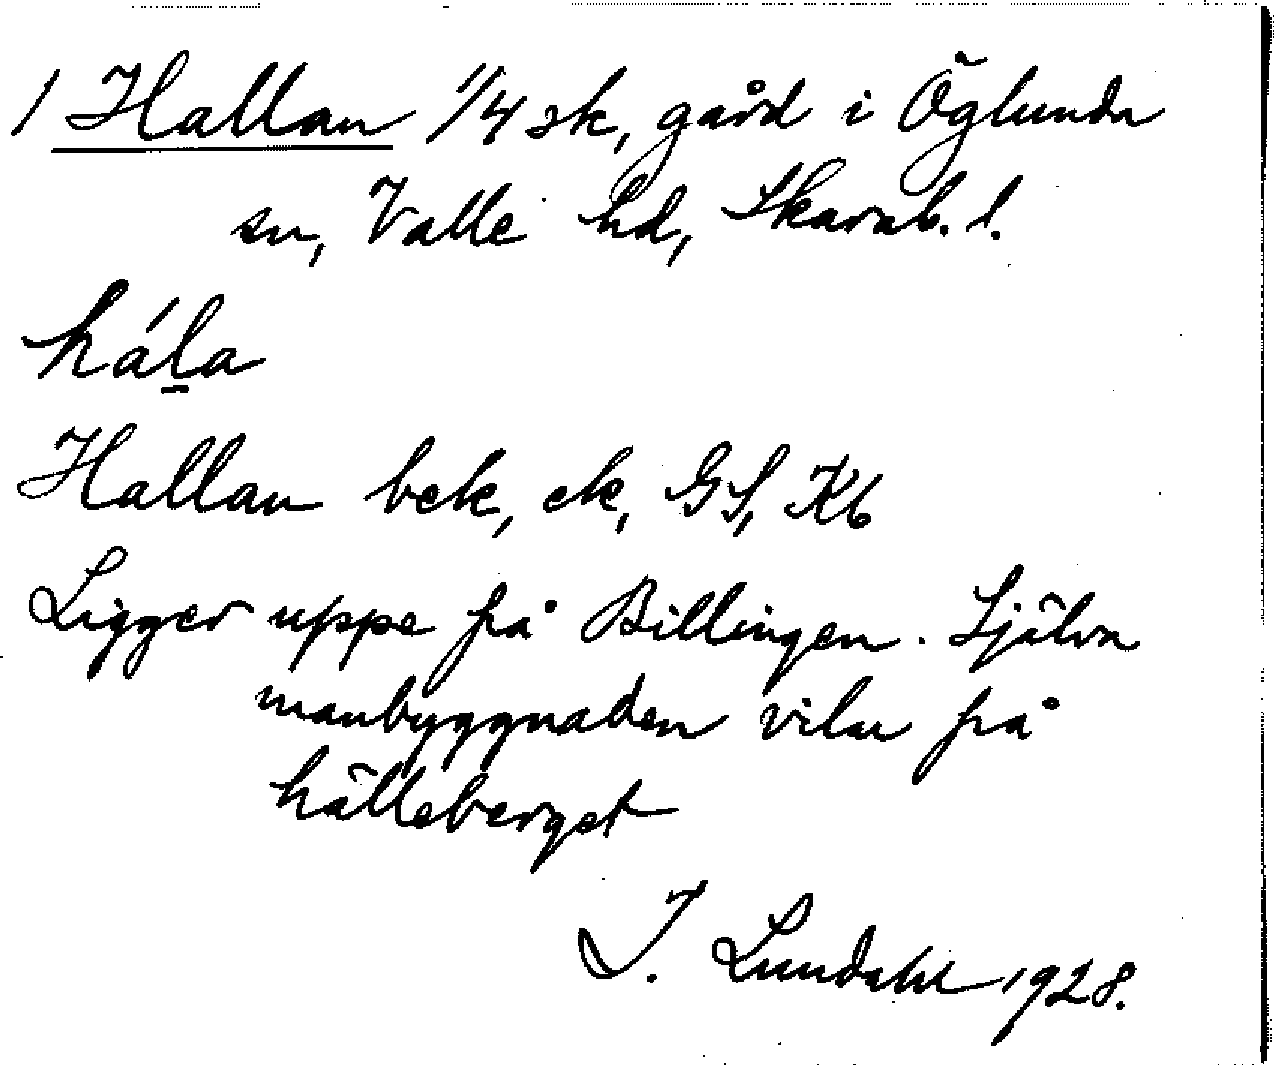 1 Hallan 1/4 sk, gård i Öglunda
sn, Valle hd, Skarab. l.
hál̠a
Hallan bek, ek, GS, Kb
Ligger uppe på Billingen. Själva
manbyggnaden vilar på
hälleberget
I. Lundahl 1928.